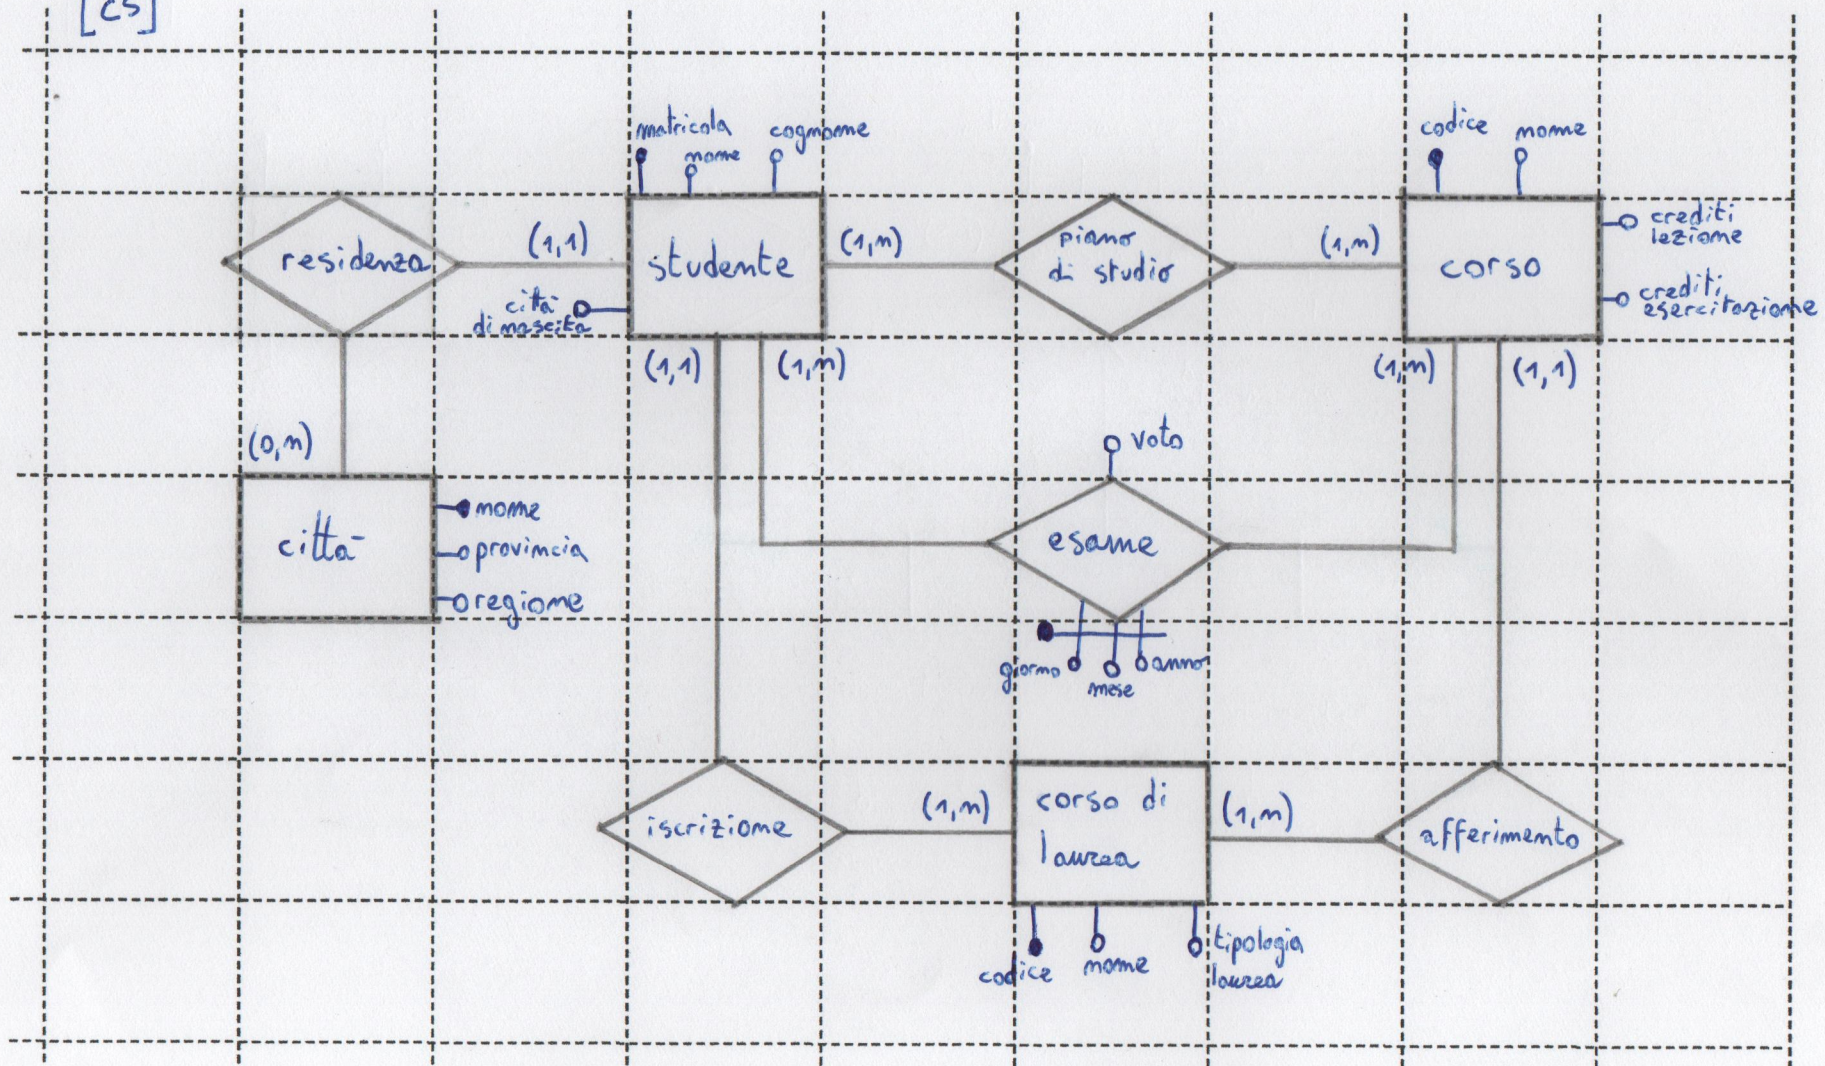 [CS]
matricola
nome
cognome
codice
nome
residenza
(1,1)
studente
(1,n)
piano
di studio
(1,n)
corso
crediti
lezione
crediti
esercitazione
città
di nascita
(1,1)
(1,n)
(1,n)
(1,1)
(0,n)
voto
città
nome
provincia
regione
esame
giorno
mese
anno
iscrizione
(1,n)
corso di
laurea
(1,n)
afferimento
codice
nome
tipologia
laurea